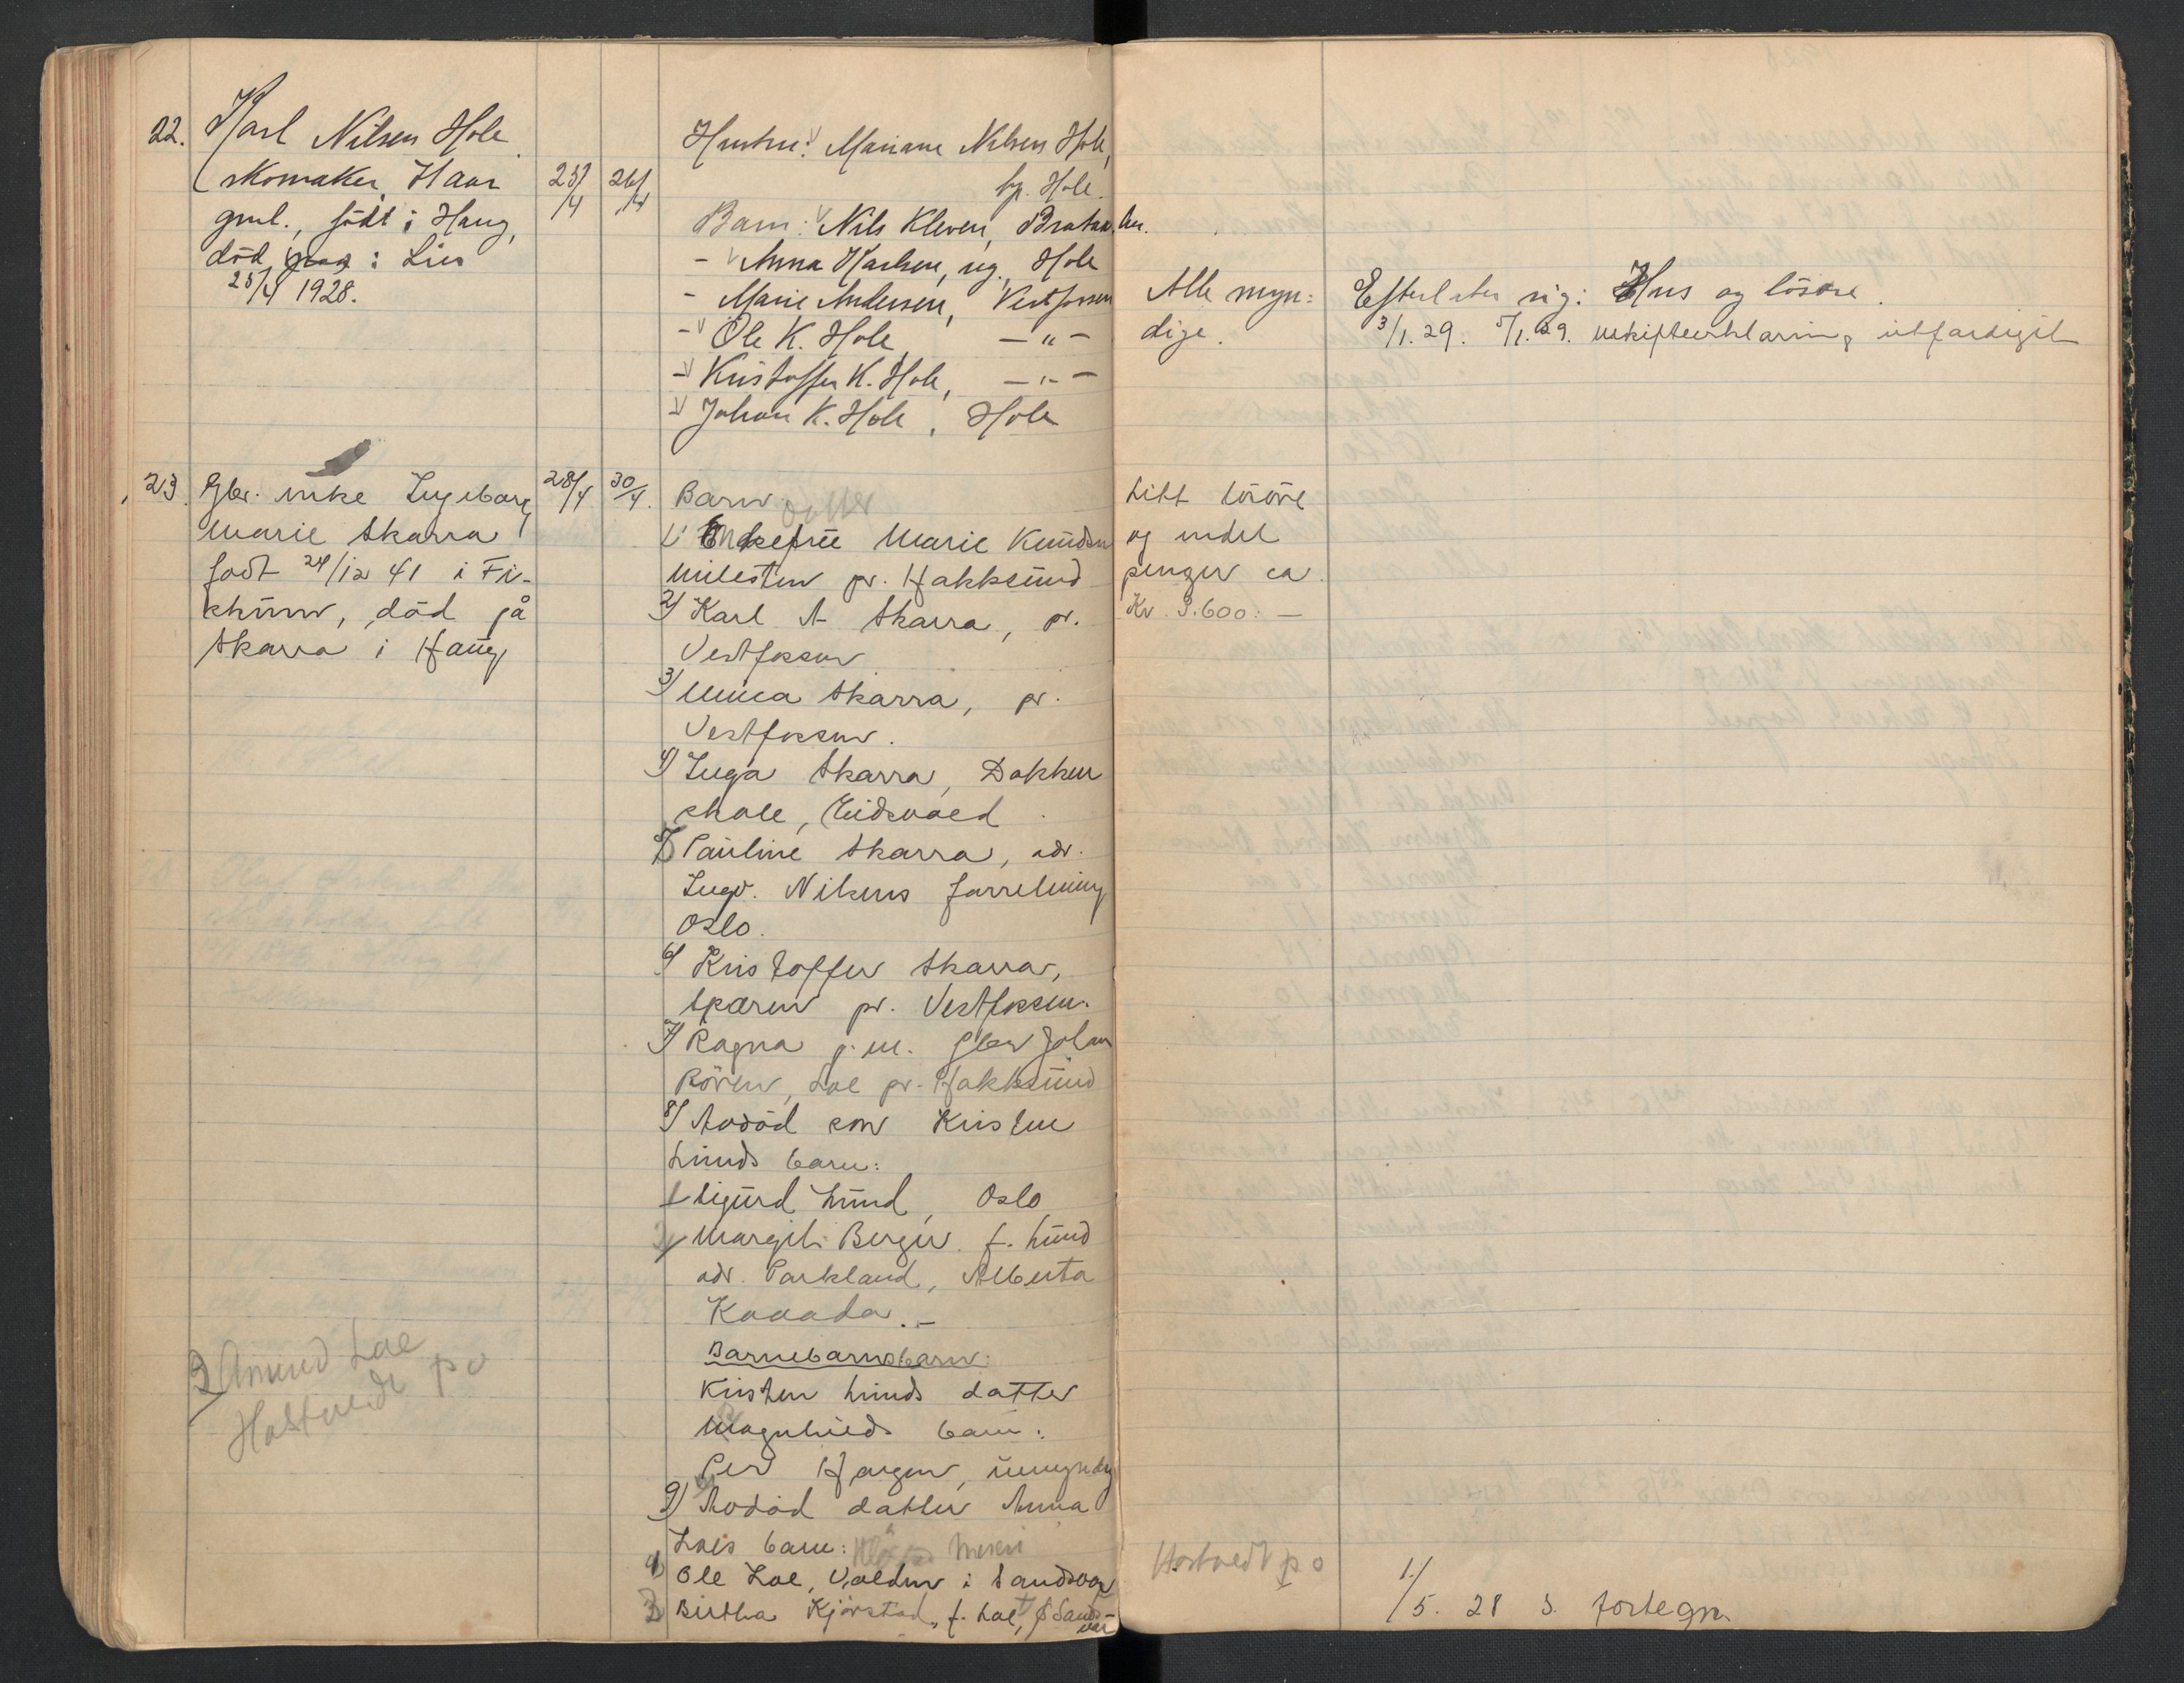 22. Karl Nilsen Hole
skomaker, 77 aar
gml., født i Haug,
død i Lier
25/4 1928.
25/4 26/4
Hustru: Mariane Nilsen Hole,
hp. Hole.
Barn: Nils Kleven, Brataas, her.
- Anna Karlsen, ug., Hole
- Marie Andersen, Vestfossen
- Ole K. Hole, - " -
- Kristoffer K. Hole, - " -
- Johan K. Hole, Hole
Alle myn=
dige.
Efterlater sig: Hus og løsøre.
3/1. 29. 5/1.29. uskifteerklæring utfærdiget
23. Gbr. enke Ingeborg
Marie Skarra
født 24/12 41 i Fi-
skum, død på
Skarra i Haug
28/4 30/4.
Barn
datter
1) Enkefrue Marie Knudsen
Milesten pr. Hokksund
2) Karl A Skarra, pr.
Vestfossen
3) Mina Skarra, pr.
Vestfossen.
4) Inga Skarra, Dokken
skole, Eidsvold
5) Pauline Skarra, adr.
Ingv. Nilsens forretning
Oslo.
6) Kristoffer Skarra,
Sparen pr. Vestfossen.
7) Ragna g. m. Gbr. Johan
Røren, Loe pr. Hokksund
8) Avdød søn Kristen
Lunds barn:
1 Sigurd Lund, Oslo
2) Margit Berger f. Lund
adr. Parkland, Alberta
Kanada.-
Barnebarnsbarn:
Kristen Lunds datter
Magnhilds barn:
Per Hagen, umyndig
9) Avdød datter Anna
Loes barn:
1) Ole Loe, i Sandsvær
2) Birtha Kjørstad, f. Loe, Sands-
vær
3) Amund Loe
Hostvedt po
Litt løsøre
og endel
penger ca.
Kr. 3.600:-
Hostvedt p o
1/5. 28 S. fortegn.